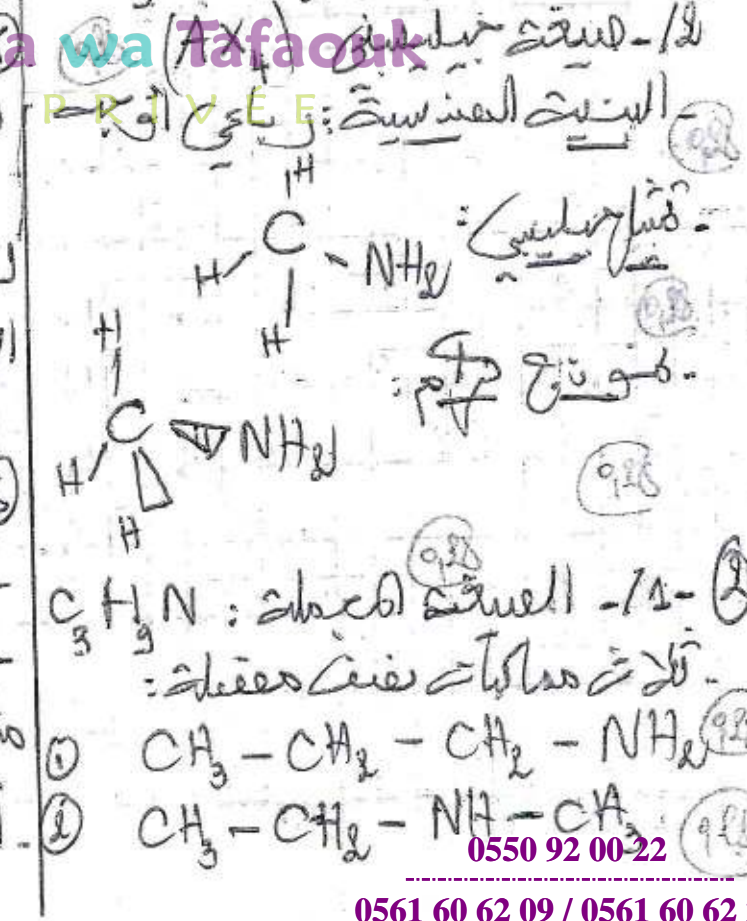 wa Tafaouk
PRIVÉE
2/- صيغة جيليسبي (AX₄) 0,25
- البنية الهندسية: رباعي أوجه 0,25
- تمثيل جيليسبي:
H
C
H NH₂
H
0,25
- نموذج كرام:
H
C NH₂
H
H
0,25
0,25
② -1/- الصيغة المجملة: C₃H₉N
- ثلاث مماكبات نصف مفصلة:
① CH₃ – CH₂ – CH₂ – NH₂
② CH₃ – CH₂ – NH – CH₃
0550 92 00 22
0561 60 62 09 / 0561 60 62